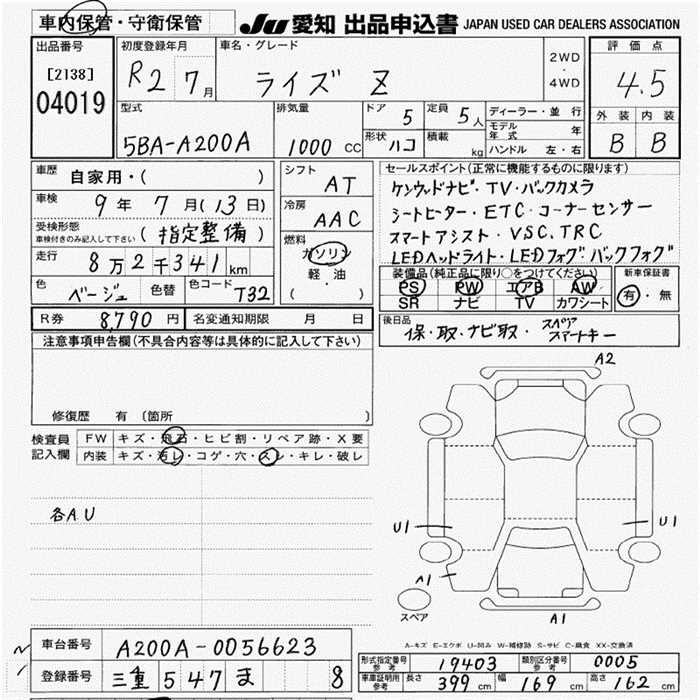 車内保管・守衛保管
JU 愛知 出品申込書 JAPAN USED CAR DEALERS ASSOCIATION
出品番号
[2138]
04019
初度登録年月
R2 7月
車名・グレード
ライズ Z
2WD
・
4WD
評価点
4.5
外装 内装
B B
型式
5BA-A200A
排気量
1000 CC
ドア 5
定員 5人
形状 ハコ
積載 kg
ディーラー・並行
モデル年式 年
ハンドル 左・右
車歴
自家用・( )
車検
9年 7月(13日)
受検形態
車検付きのみ記入して下さい (指定整備)
走行
8万2千341km
色 ベージュ 色替 色コード T32
シフト
AT
冷房
AAC
燃料
ガソリン
軽・油
( )
セールスポイント(正常に機能するものに限ります)
ケンウッドナビ・TV・バックカメラ
シートヒーター・ETC・コーナーセンサー
スマートアシスト・VSC.TRC
LEDヘッドライト・LEDフォグ・バックフォグ
装備品(純正品に限り○をつけてください)
PS PW エアB AW
SR ナビ TV カワシート
新車保証書
有・無
R券 8,790円 名変通知期限 月 日
後日品
保・取・ナビ取・スペアスマートキー
注意事項申告欄(不具合内容等は具体的に記入して下さい)
修復歴 有 〔箇所
検査員記入欄
FW キズ・飛石・ヒビ割・リペア跡・X要
内装 キズ・汚レ・コゲ・穴・スレ・キレ・破レ
各AU
A2
U1
U1
A1
スペア
A1
A-キズ E-エクボ U-凹み W-補修跡 S-サビ C-腐食 XX-交換済
車台番号 A200A-0056623
登録番号 三重 547 ま 8
形式指定番号 参考 19403 類別区分番号 参考 0005
車庫証明用 参考 長さ 399 cm 幅 169 cm 高さ 162 cm